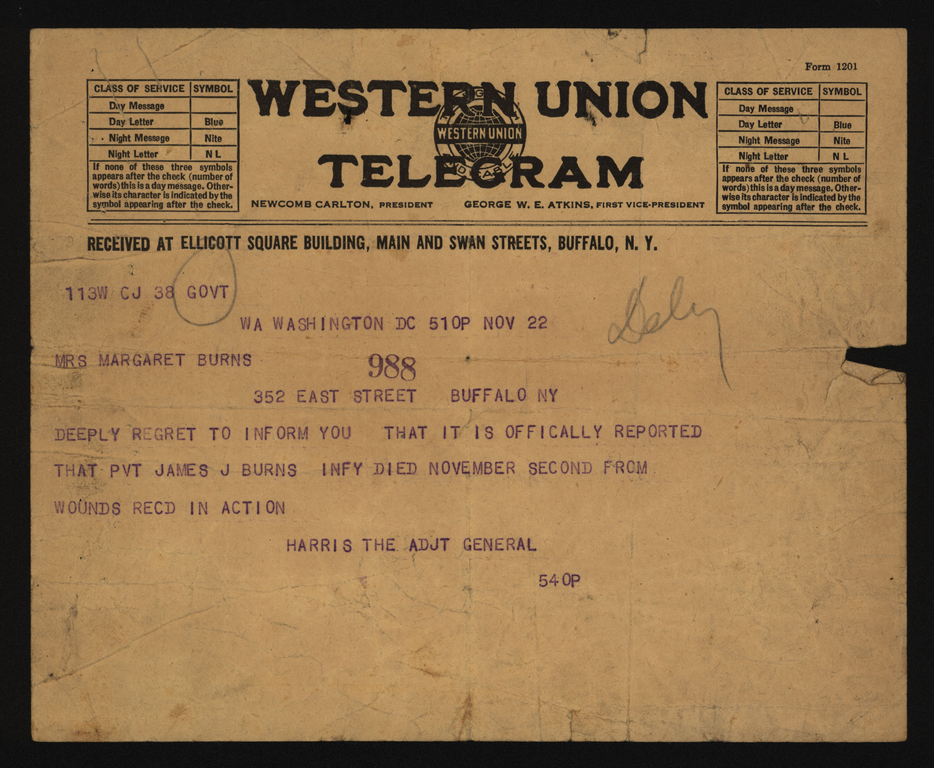 Form 1201
CLASS OF SERVICE SYMBOL
Day Message
Day Letter Blue
Night Message Nite
Night Letter N L
If none of these three symbols
appears after the check (number of
words) this is a day message. Other-
wise its character is indicated by the
symbol appearing after the check.
WESTERN UNION
WESTERN UNION
TELEGRAM
NEWCOMB CARLTON, PRESIDENT GEORGE W. E. ATKINS, FIRST VICE-PRESIDENT
CLASS OF SERVICE SYMBOL
Day Message
Day Letter Blue
Night Message Nite
Night Letter N L
If none of these three symbols
appears after the check (number of
words) this is a day message. Other-
wise its character is indicated by the
symbol appearing after the check.
RECEIVED AT ELLICOTT SQUARE BUILDING, MAIN AND SWAN STREETS, BUFFALO, N. Y.
113W CJ 38 GOVT
WA WASHINGTON DC 510P NOV 22
MRS MARGARET BURNS 988
352 EAST STREET BUFFALO NY
DEEPLY REGRET TO INFORM YOU THAT IT IS OFFICALLY REPORTED
THAT PVT JAMES J BURNS INFY DIED NOVEMBER SECOND FROM
WOUNDS RECD IN ACTION
HARRIS THE ADJT GENERAL
540P